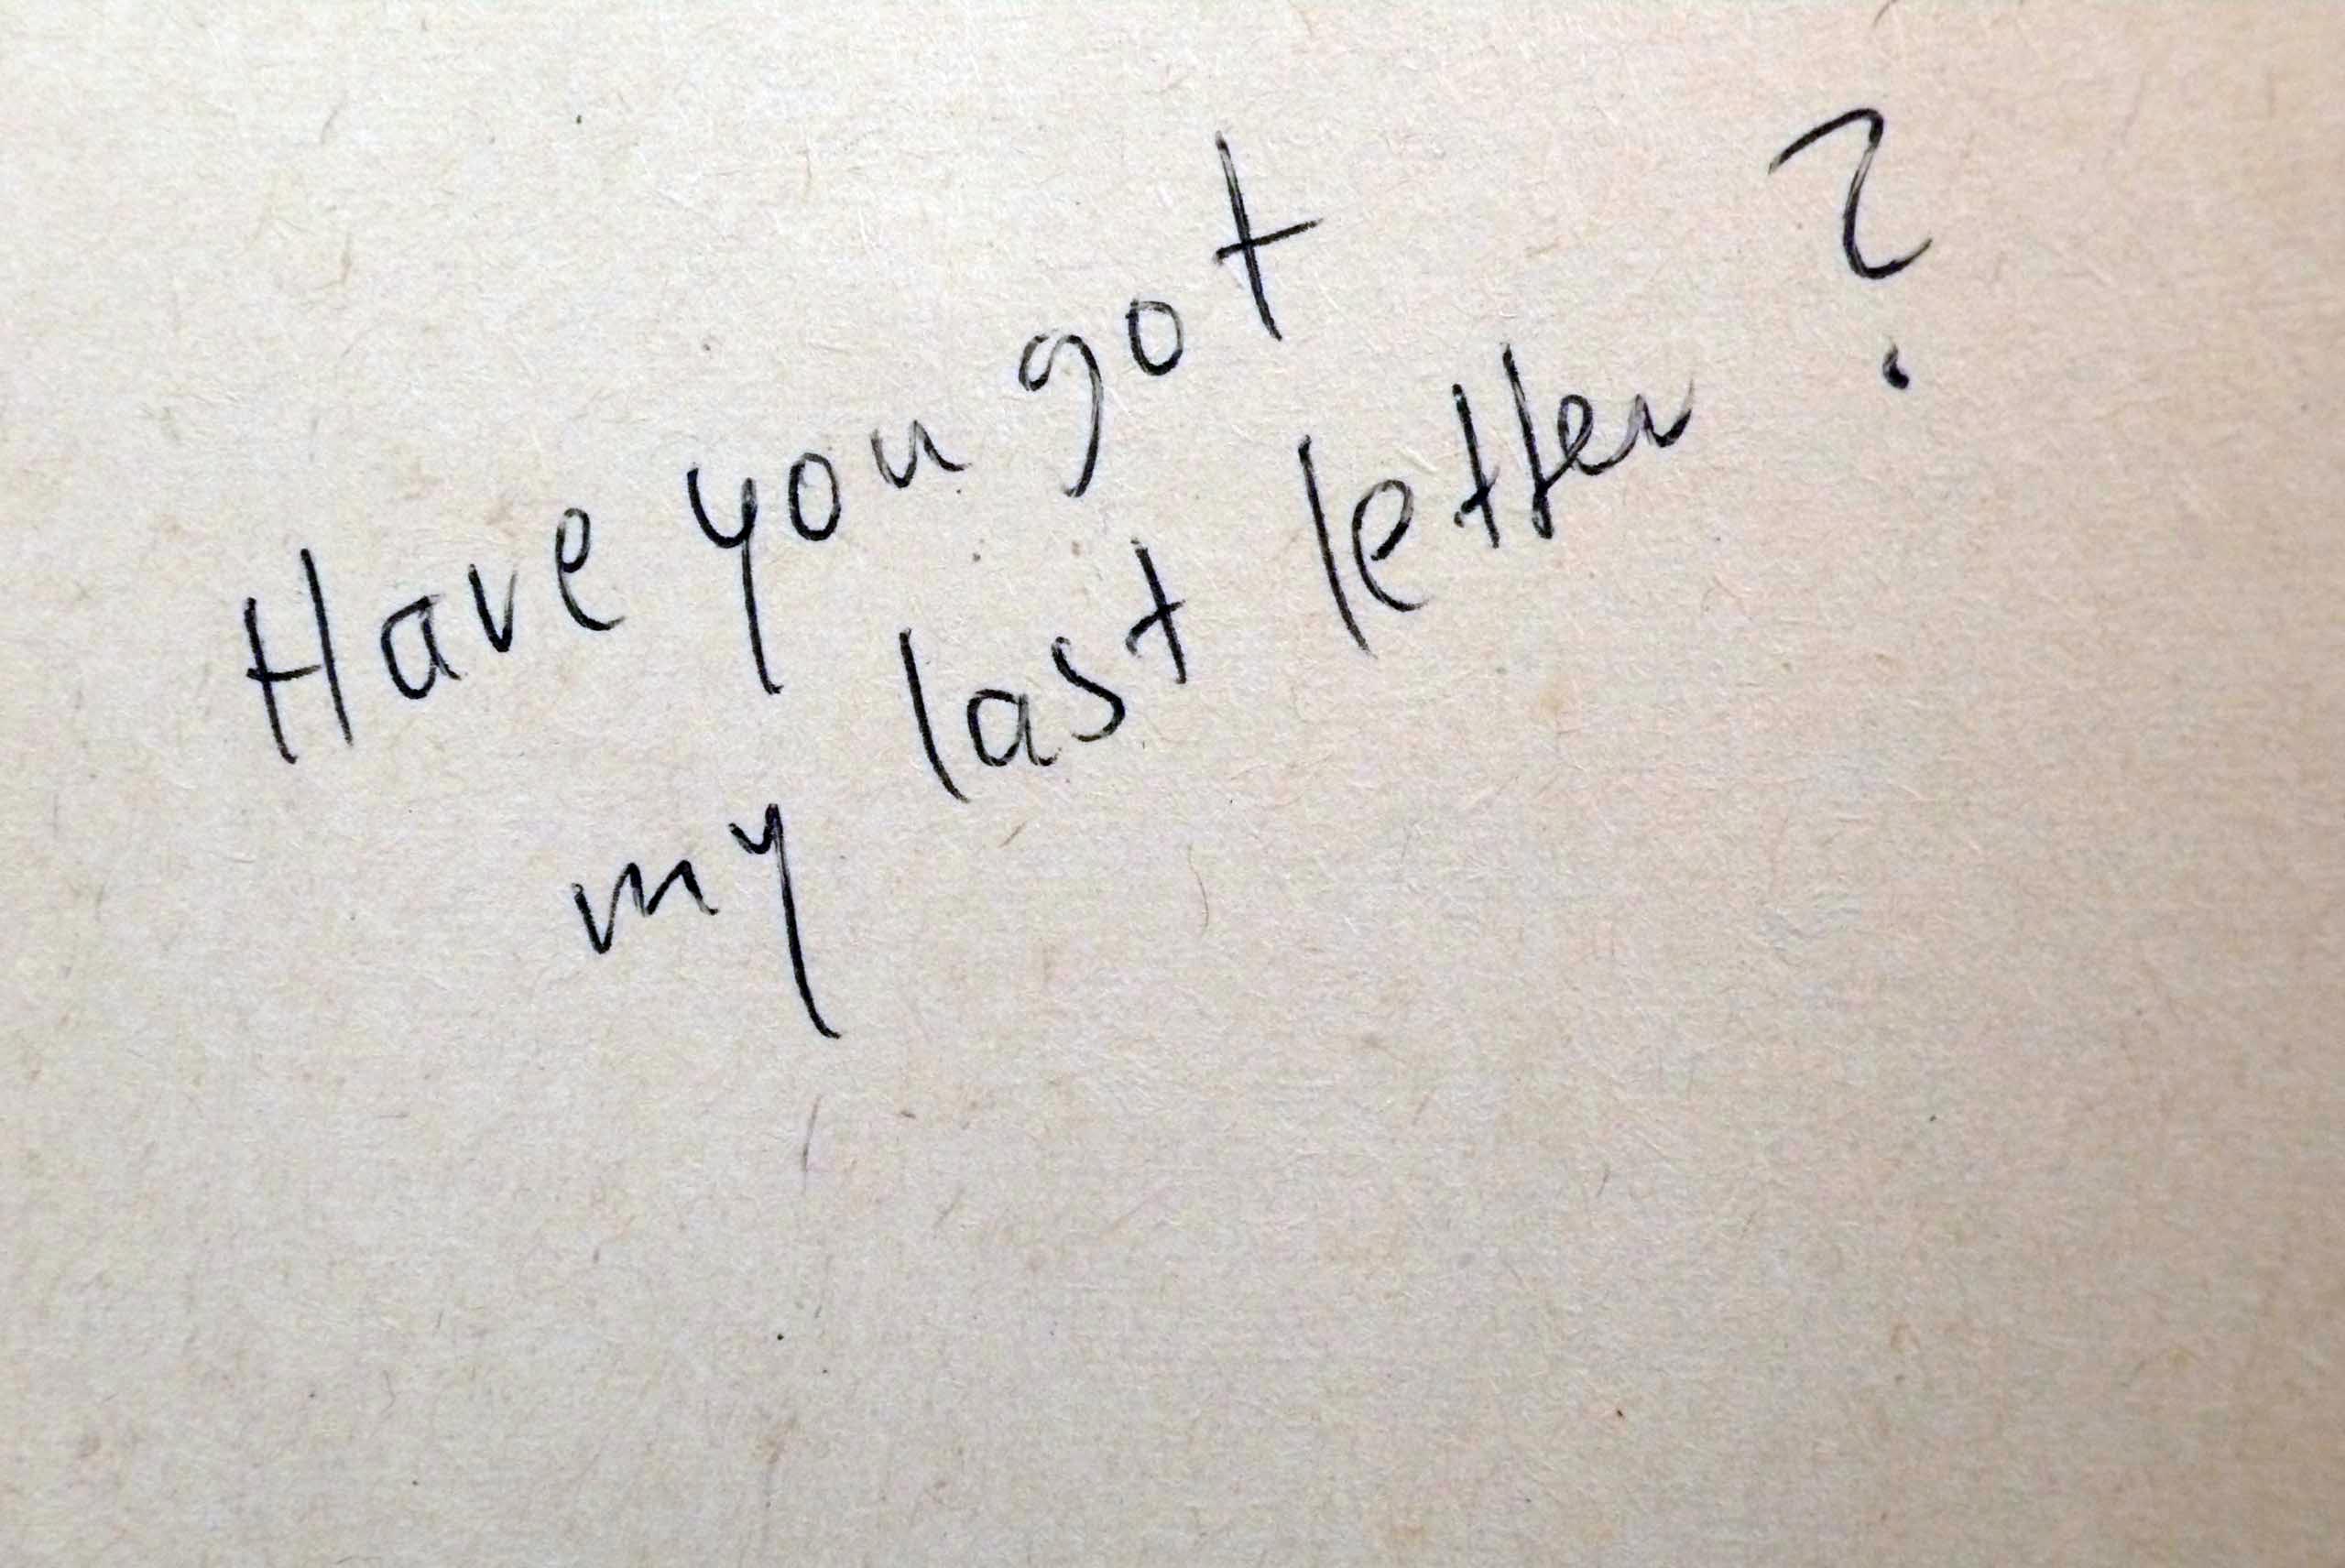 Have you got
my last letter?